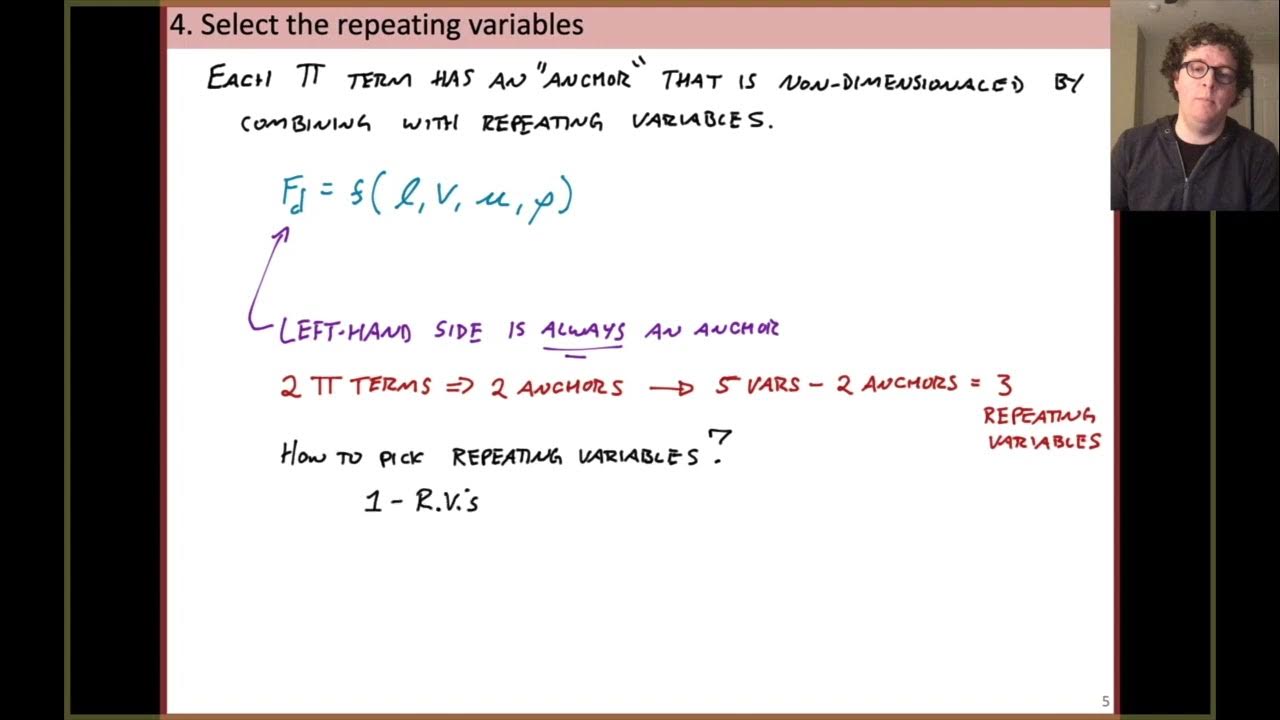 4. Select the repeating variables
EACH Π TERM HAS AN "ANCHOR" THAT IS NON-DIMENSIONALED BY
COMBINING WITH REPEATING VARIABLES.
Fd = f( l, V, μ, ρ )
LEFT-HAND SIDE IS ALWAYS AN ANCHOR
2 Π TERMS => 2 ANCHORS → 5 VARS - 2 ANCHORS = 3
REPEATING
VARIABLES
HOW TO PICK REPEATING VARIABLES?
1 - R.V.'s
5